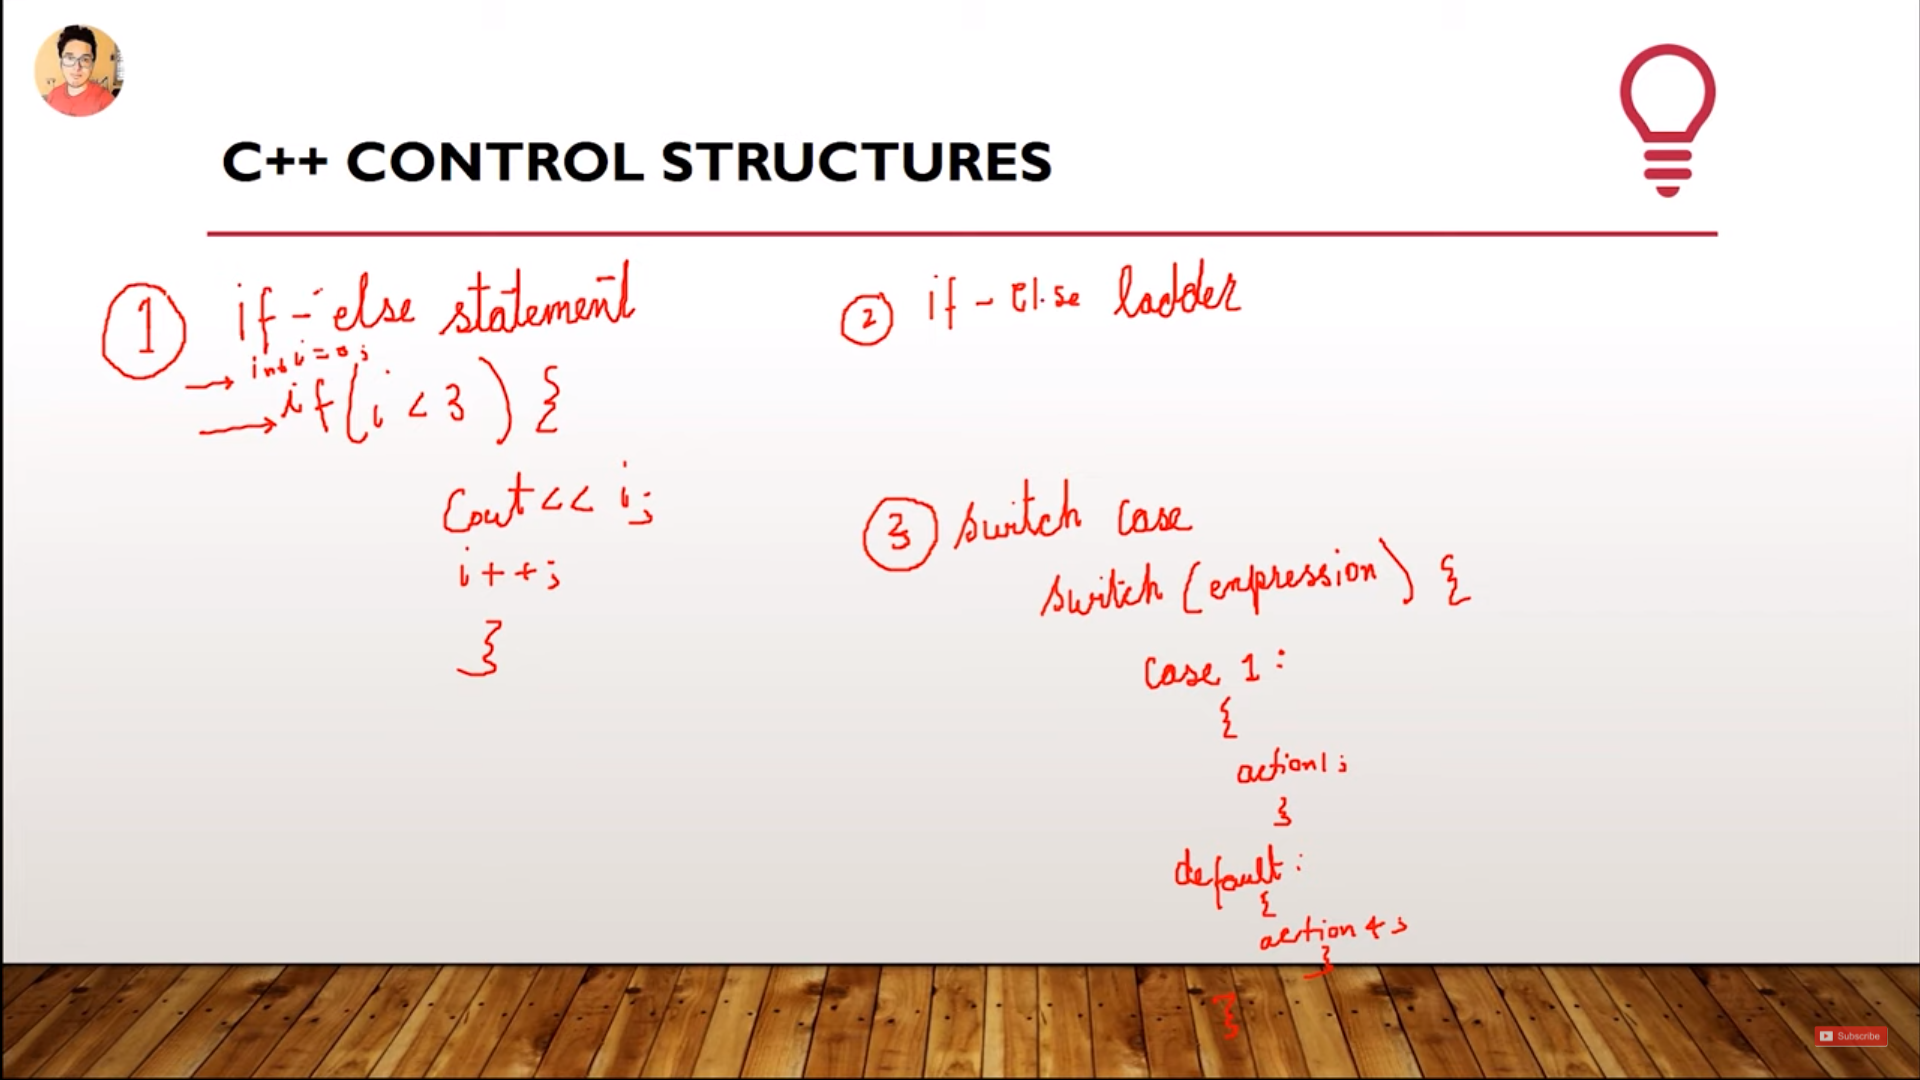 C++ CONTROL STRUCTURES
1 if-else statement
int i=0;
if(i<3){
Cout<< i;
i++;
}
2 if-else ladder
3 switch case
switch (expression) {
Case 1:
{
action1;
}
default:
{
action4;
}
}
Subscribe